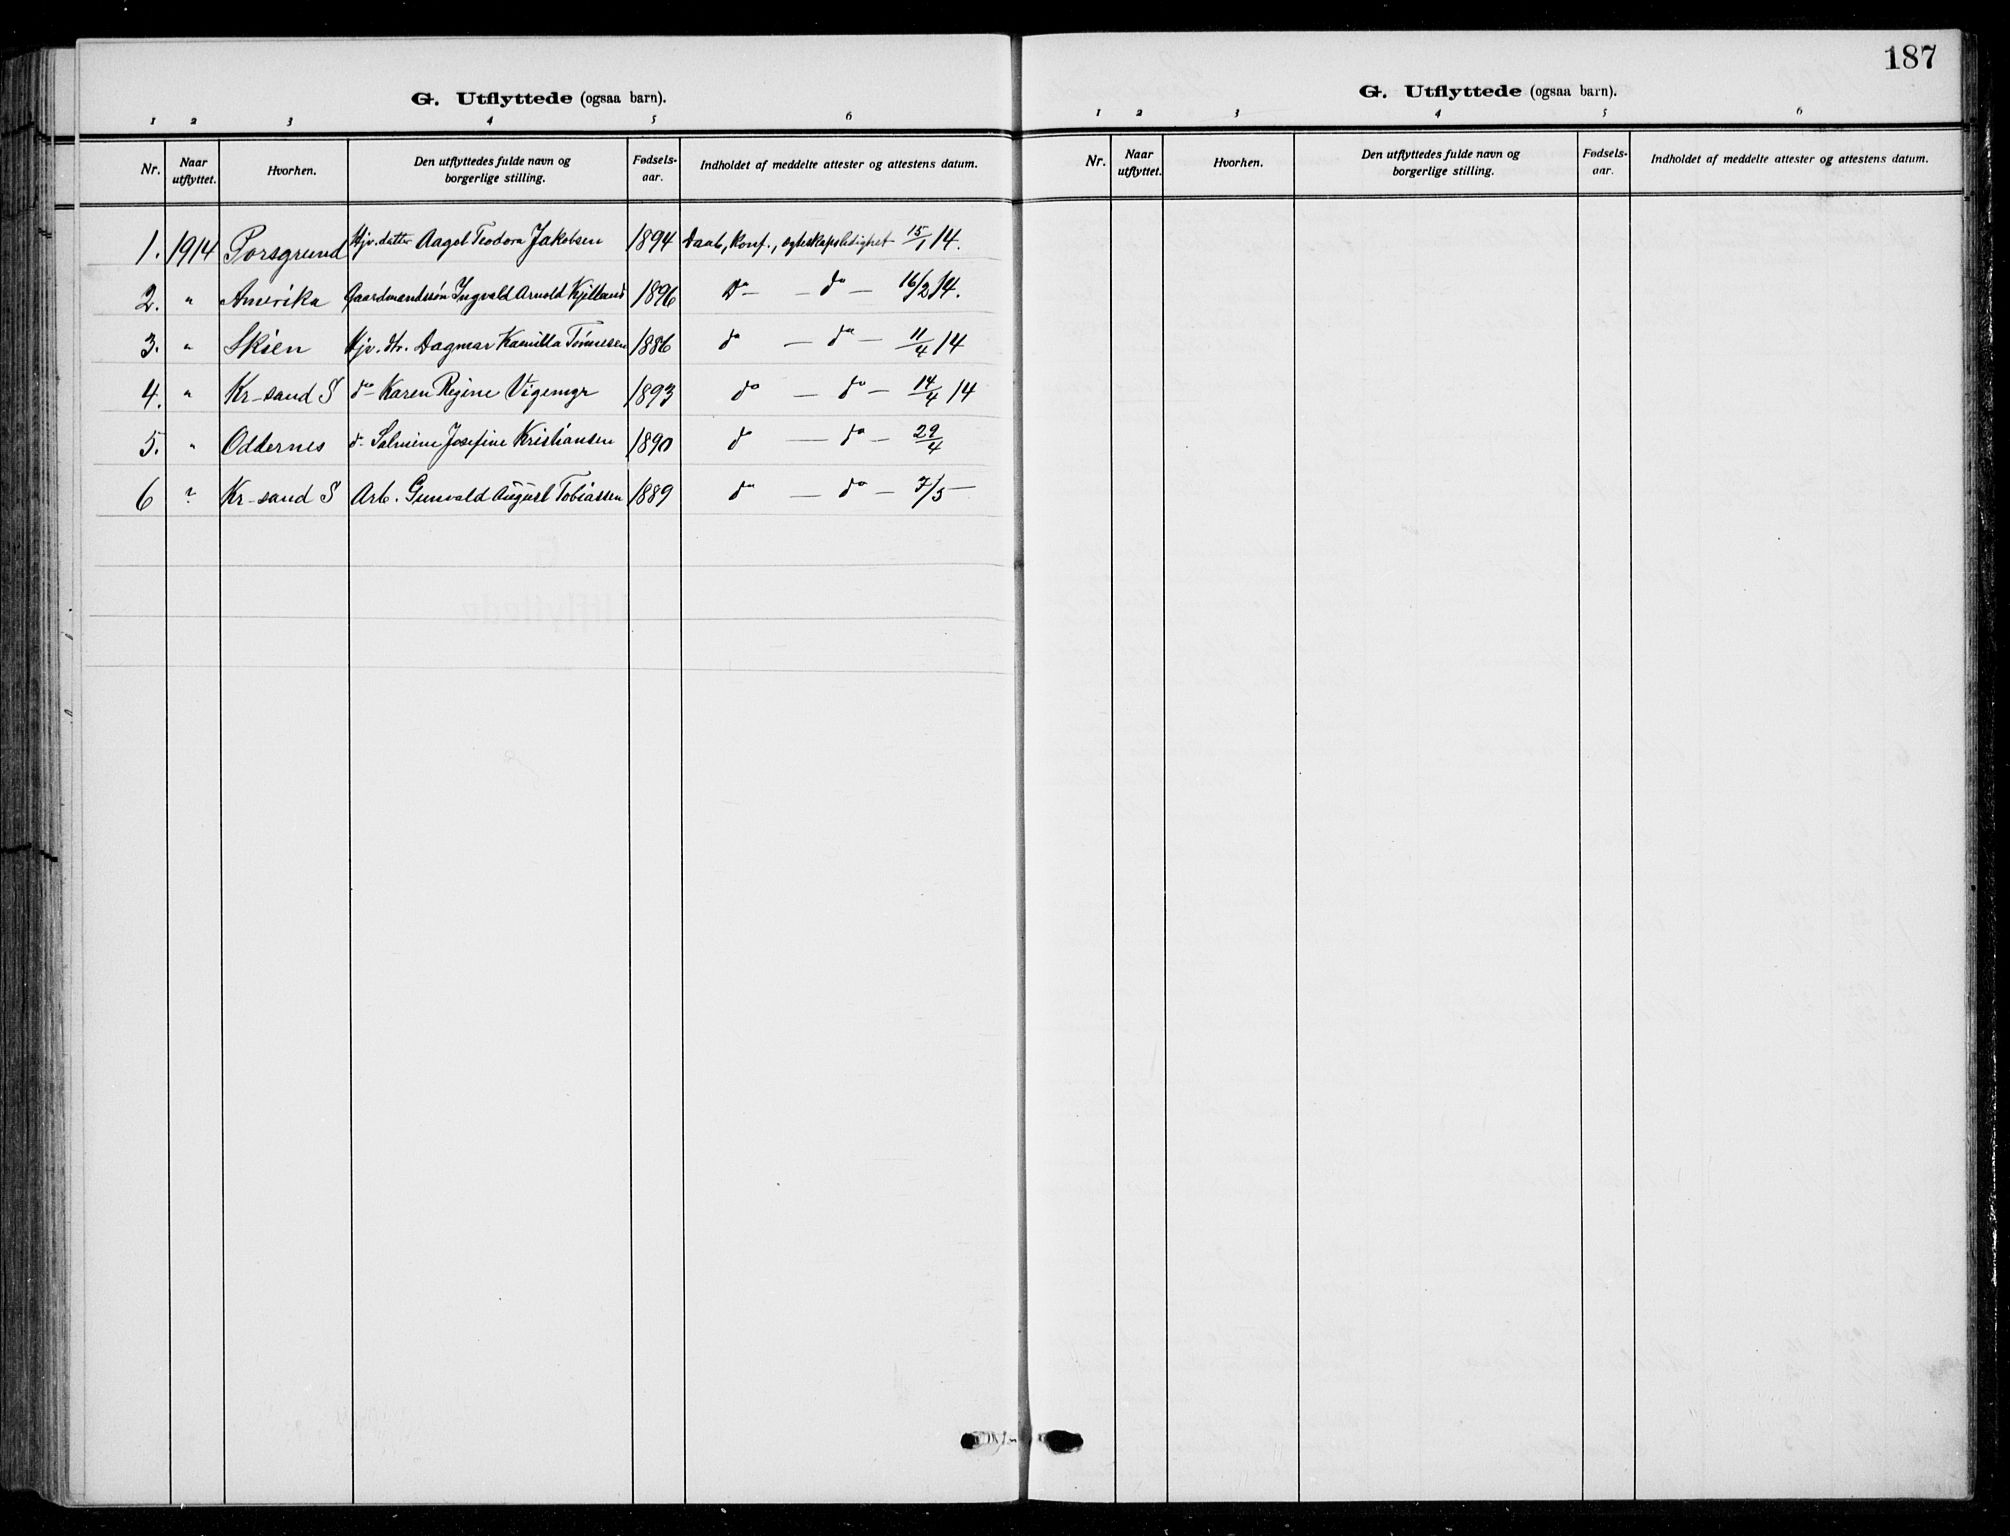 G. Utflyttede (ogsaa barn).
1 2 3 4 5 6
Nr. Naar utflyttet. Hvorhen. Den utflyttedes fulde navn og borgerlige stilling. Fødsels-aar. Indholdet af meddelte attester og attestens datum.
1. 1914 Porsgrund Hjv. datter Aagot Teodora Jakobsen 1894 Daab, Konf., egteskapsledighet 15/1 14.
2. " Amerika Gaardmandssøn Ingvald Arnold Kjilland 1896 Do — do — 16/2 14.
3. " Skien Hjv. dtr. Dagmar Kamilla Tønnesen 1886 do — do — 11/4 14
4. " Kr-sand S do Karen Regine Vigemyr 1893 do — do — 14/4 14
5. " Oddernes do Josefine Kristiansen 1890 do — do — 29/4
6 " Kr-sand S Arb. Gunvald August Tobiassen 1889 do — do — 7/5 —
187
G. Utflyttede (ogsaa barn).
1 2 3 4 5 6
Nr. Naar utflyttet. Hvorhen. Den utflyttedes fulde navn og borgerlige stilling. Fødsels-aar. Indholdet af meddelte attester og attestens datum.